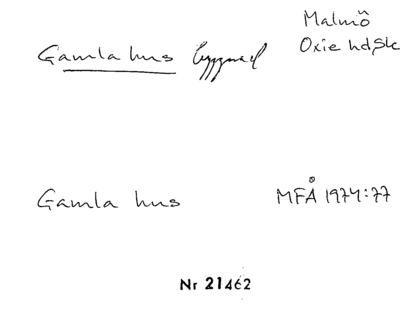 Gamla hus byggnad
Malmö
Oxie hd, Sk
Gamla hus
MFÅ 1974:77
Nr 21462